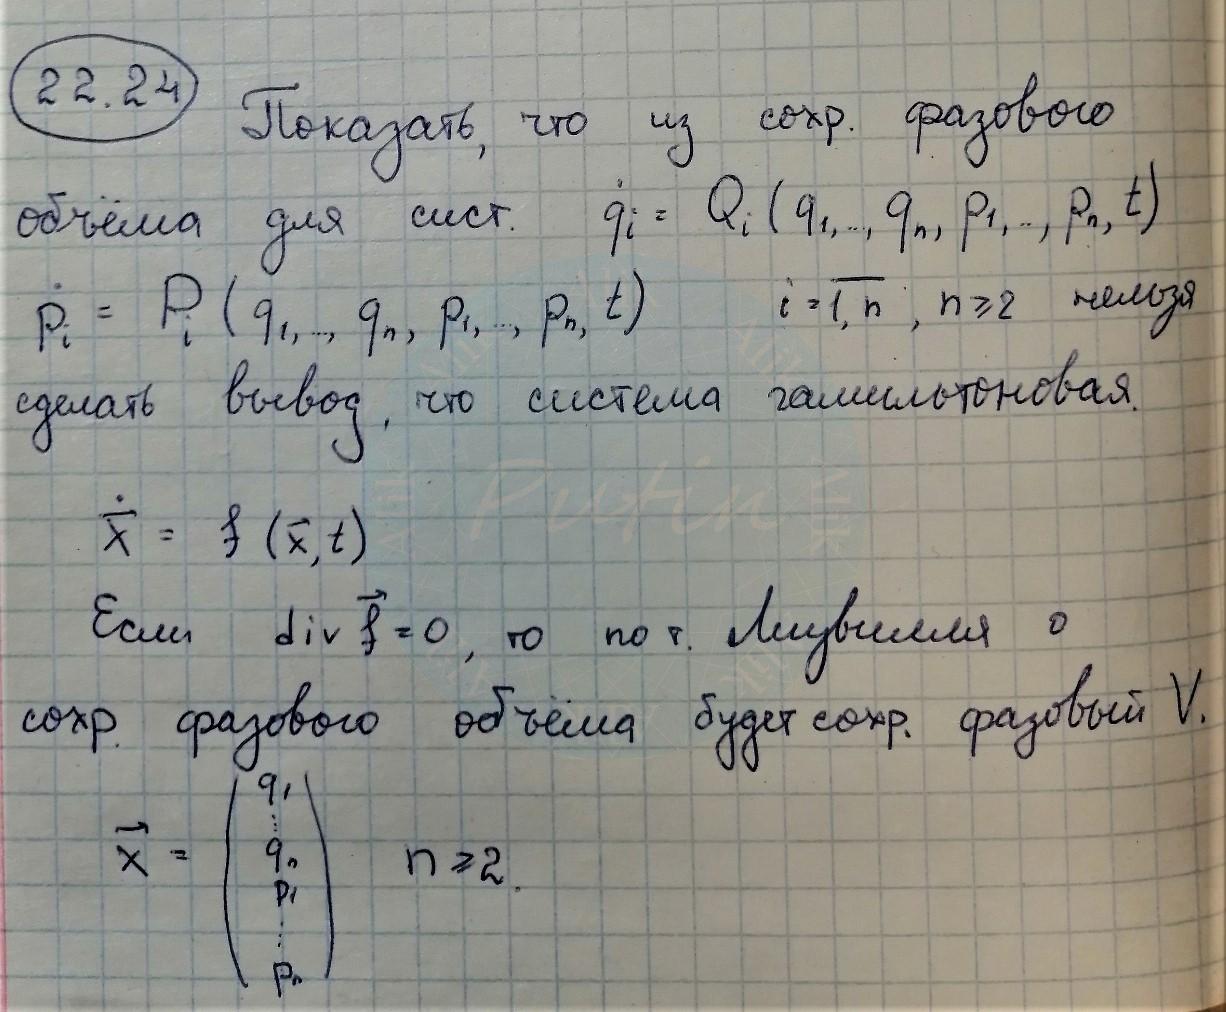 22.24 Показать, что из сохр. фазового
объёма для сист. q̇ᵢ = Qᵢ(q₁,..., qₙ, p₁,..., pₙ, t)
ṗᵢ = Pᵢ(q₁,..., qₙ, p₁,..., pₙ, t) i = 1,n̅, n ⩾ 2 нельзя
сделать вывод, что система гамильтоновая.
ẋ⃗ = f(x⃗,t)
Если div f⃗ = 0, то по т. Лиувилля о
сохр. фазового объёма будет сохр. фазовый V.
x⃗ = (q₁ ... qₙ p₁ ... pₙ) n ⩾ 2.
Putin
Alik